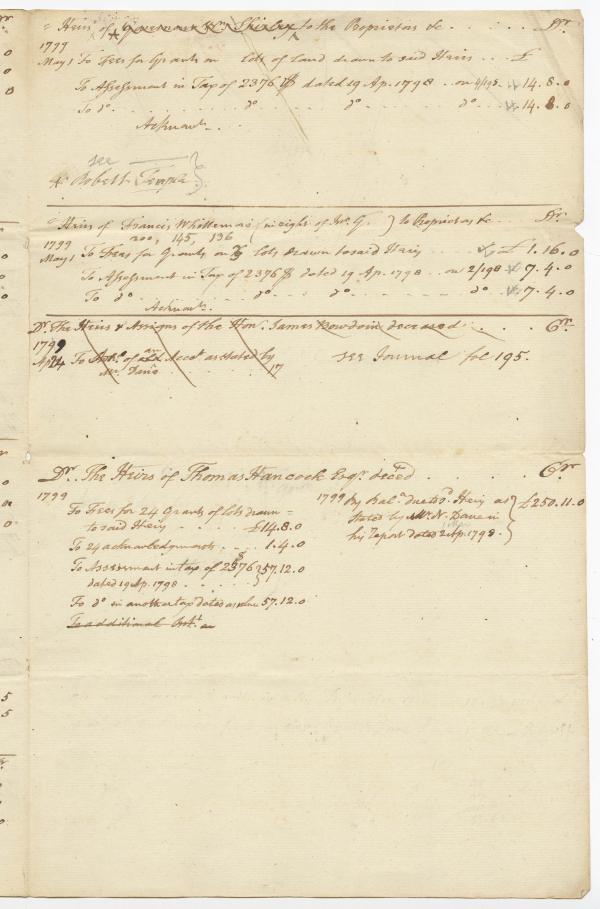 Heirs of Governour Wm Shirley to the Proprietors &c Dr.
1799
May 1 To Fees for Grants on lots of Land drawn to said Heirs £
To Assessment in Tax of 2376 dated 19 Ap. 1798 on 4/198 14.8.0
To do do do do 14.8.0
Acknowt.
see
Robert Temple
Heirs of Francis Whittemore in right of Jno. G. to Proprietors &c Dr.
200, 145, 196
1799
May 1 To Fees for Grants on lots drawn to said Heirs £ 1.16.0
To Assessment in Tax of 2376 dated 19 Ap. 1798 on 2/198 7.4.0
To do do do do 7.4.0
Acknowt.
Dr. The Heirs & Assigns of the Hon. James Bowdoin deceased Cr.
1799
Ap 24 To of decd. as stated by see Journal fol 195.
Mr. Dane 17
Dr. The Heirs of Thomas Hancock Esqr. deced. Cr.
1799
To Fees for 24 Grants of lots drawn
to said Heirs £14.8.0
To 24 acknowledgments 1.4.0
To Assessment in tax of 2376 57.12.0
dated 19 Ap. 1798
To do in another tax dated as above 57.12.0
To additional
1799 By Bala. due to sd. Heirs as £250.11.0
stated by Mr. N. Dane in
his report dated 2 Ap. 1798.